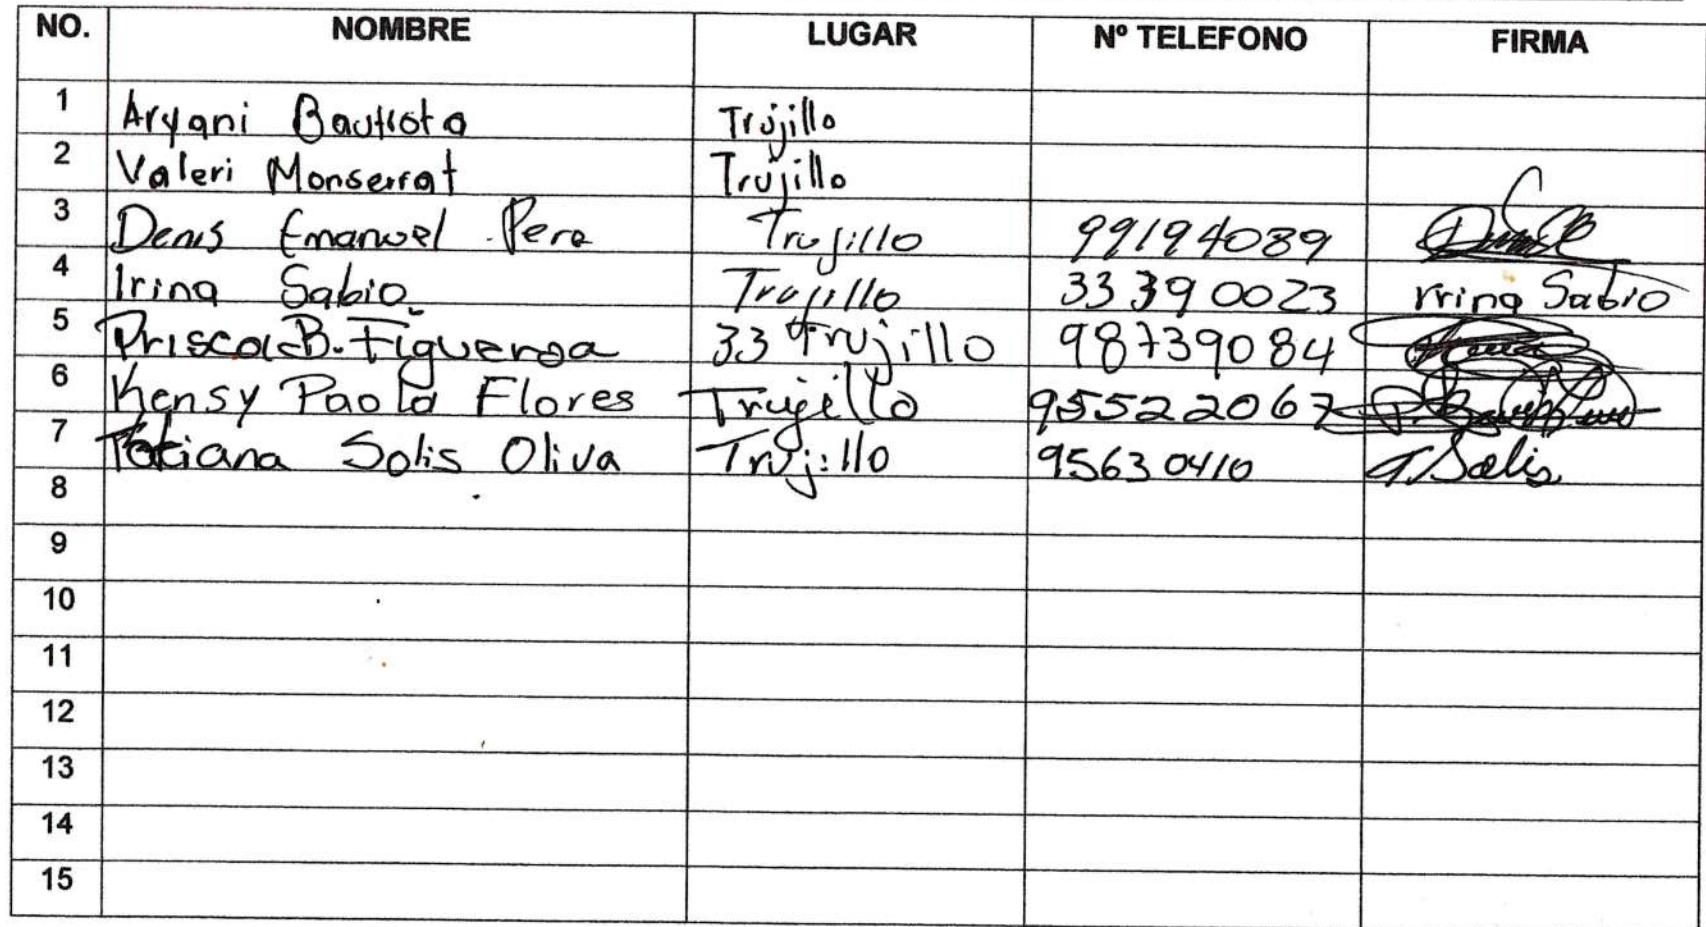 NO. NOMBRE LUGAR Nº TELEFONO FIRMA
1 Aryani Bautista Trujillo
2 Valeri Monserrat Trujillo
3 Denis Emanuel Pera Trujillo 99194089
4 Irina Sabio Trujillo 33390023 rrina Sabio
5 Prisca B. Figueroa 33 Trujillo 98739084
6 Kensy Paola Flores Trujillo 95522067
7 Tatiana Solis Oliva Trujillo 95630410 T. Solis
8
9
10
11
12
13
14
15